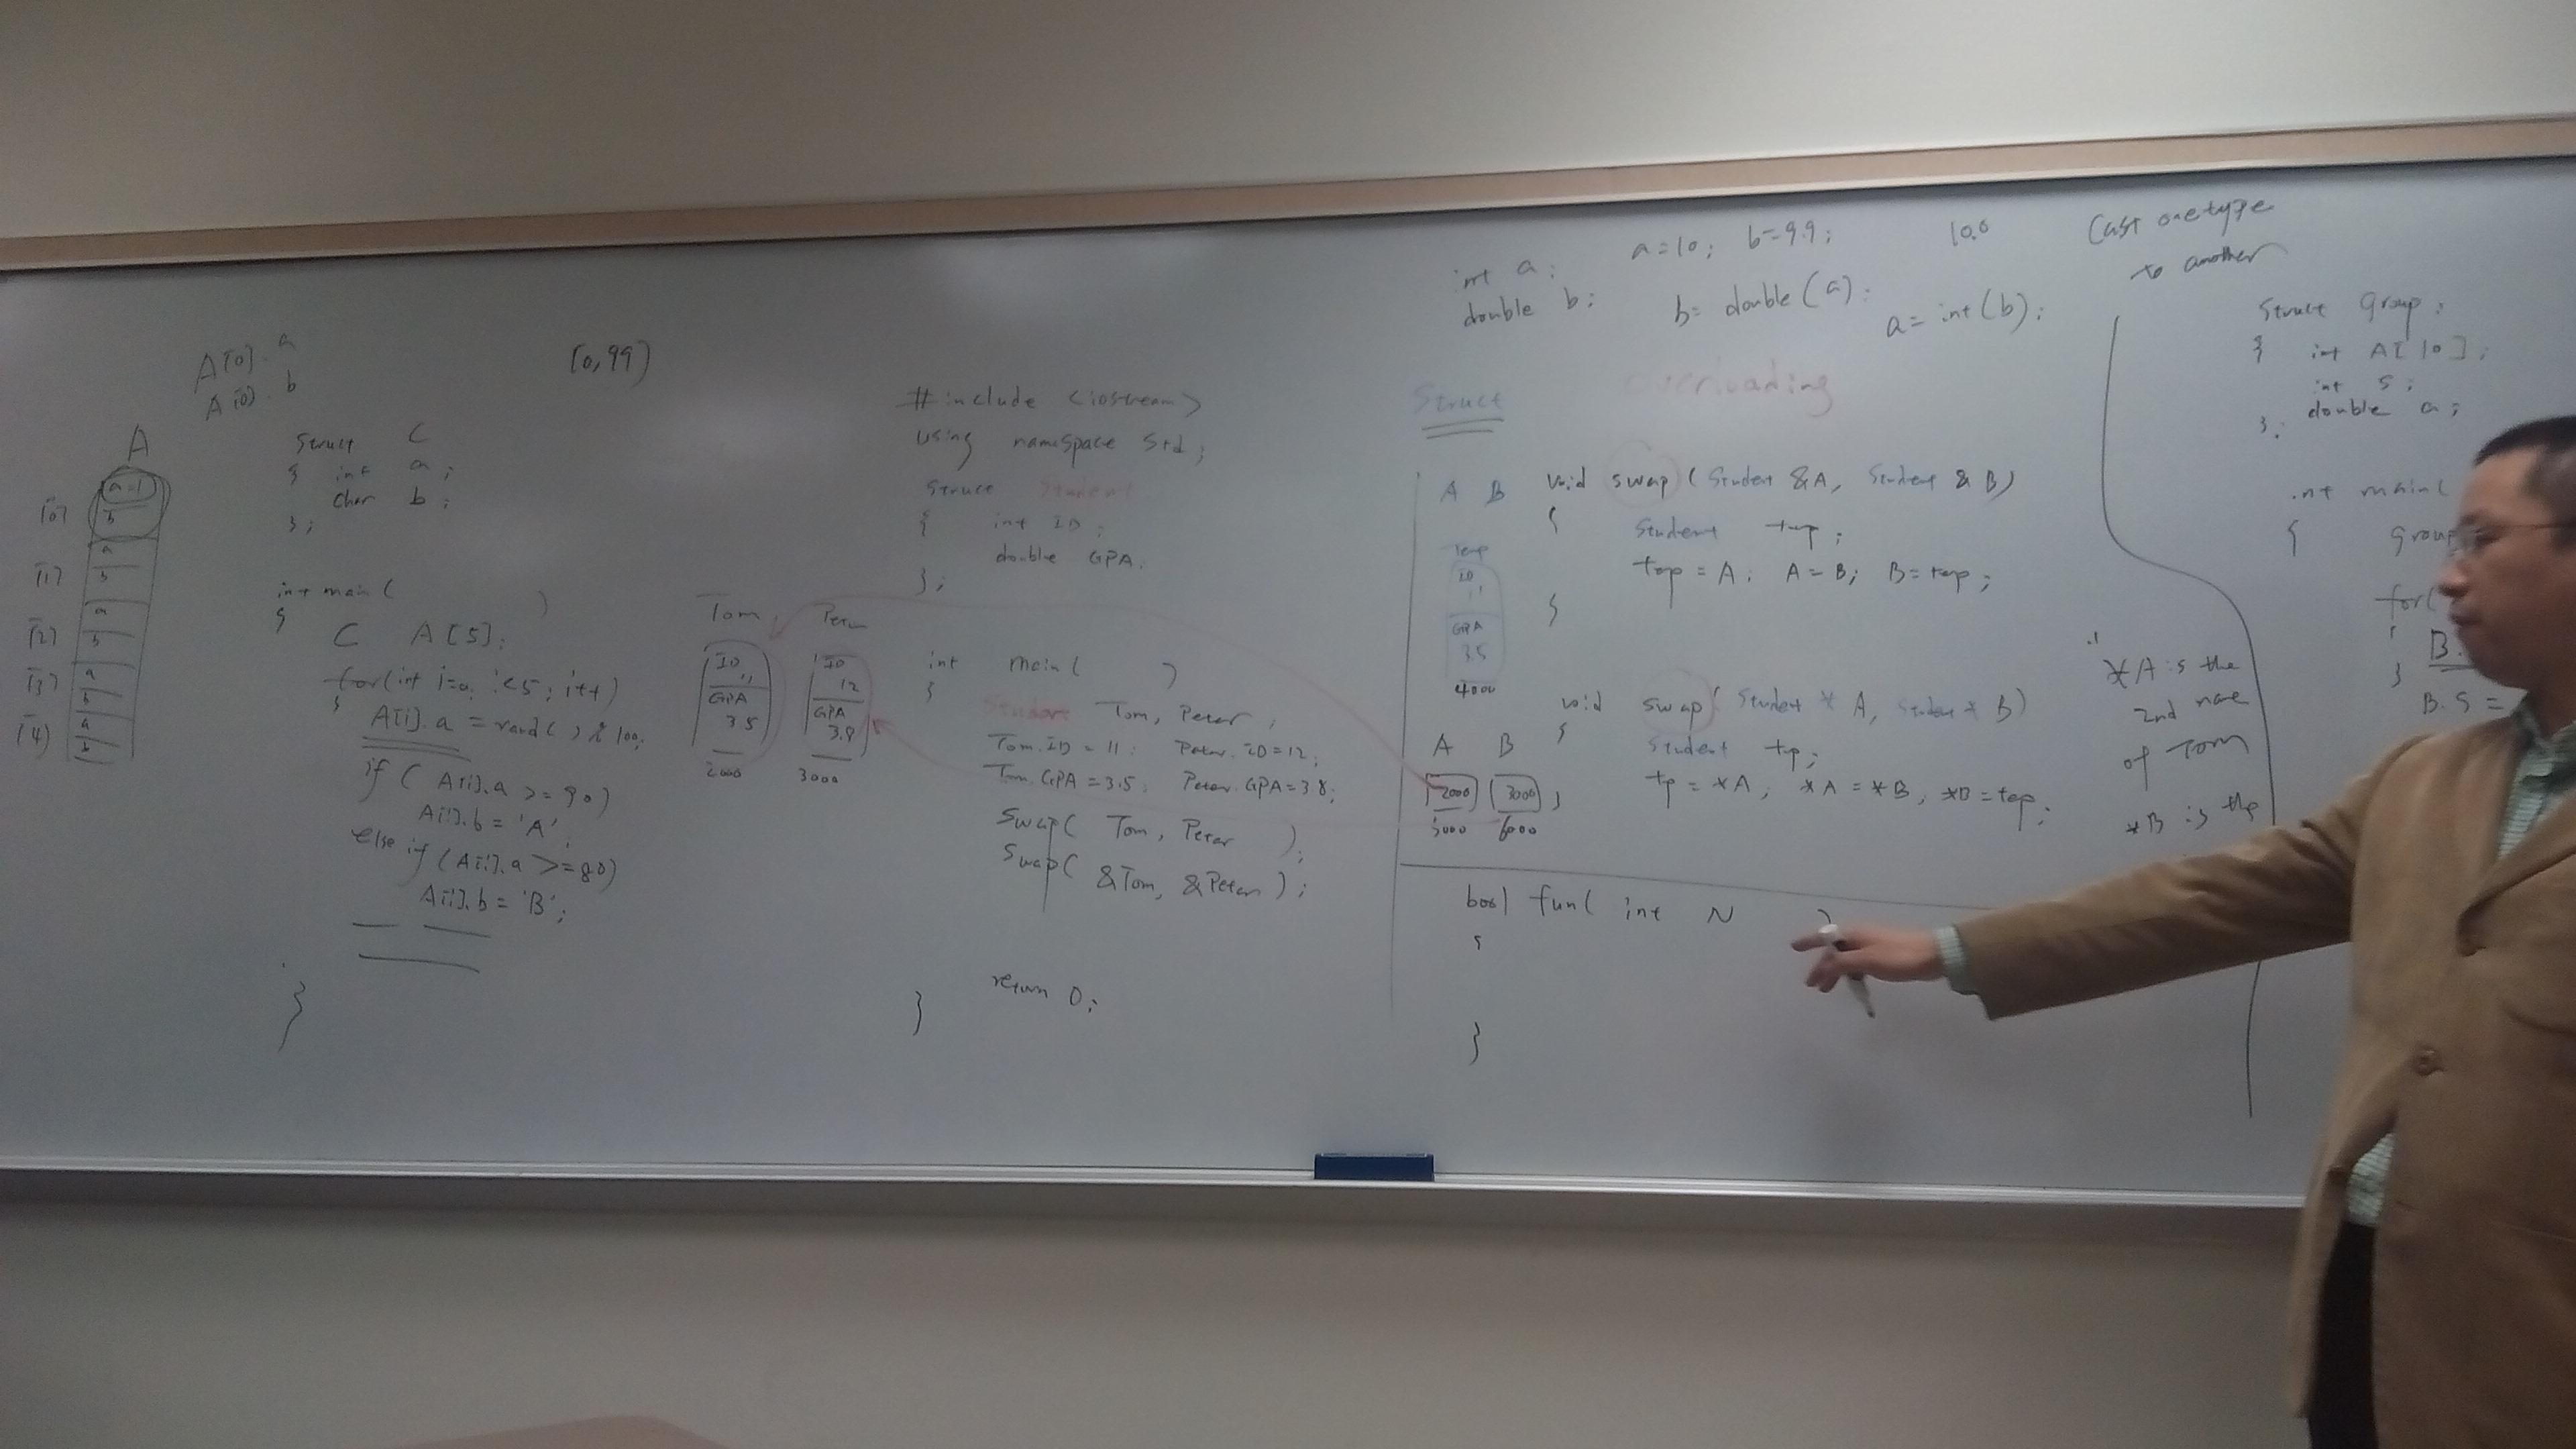 A[0].a
A[0].b
[0,99)
A
[0]
a=1
b
[1]
a
b
[2]
a
b
[3]
a
b
[4]
a
b
Struct C
{ int a;
char b;
};
int main( )
{
C A[5];
for(int i=0; i<5; i++)
{
A[i].a = rand( ) % 100;
if ( A[i].a >= 90)
A[i].b = 'A';
else if (A[i].a >= 80)
A[i].b = 'B';
}
Tom
ID
11
GPA
3.5
2000
Peter
ID
12
GPA
3.8
3000
#include <iostream>
using namespace std;
Struct Student
{ int ID;
double GPA.
};
int main( )
{
Student Tom, Peter;
Tom.ID = 11; Peter.ID=12;
Tom.GPA = 3.5; Peter.GPA=3.8;
Swap( Tom, Peter );
Swap( &Tom, &Peter );
return 0;
}
int a;
double b;
a=10; b=9.9;
b= double(a);
10.0
a= int(b);
Cast one type
to another
Struct
overloading
A B
Temp
ID
11
GPA
3.5
4000
void swap( Student &A, Student &B)
{
Student tmp;
tmp = A; A=B; B=tmp;
}
void swap( Student * A, Student * B)
{
Student tmp;
tp = *A; *A = *B; *B=tmp;
}
A B
2000 3000
5000 6000
*A is the
2nd name
of Tom
*B is the
bool fun( int N )
{
}
Struct Group;
{ int A[10];
int S;
double a;
};
int main(
{ group
for(
{ B.
}
B.S =